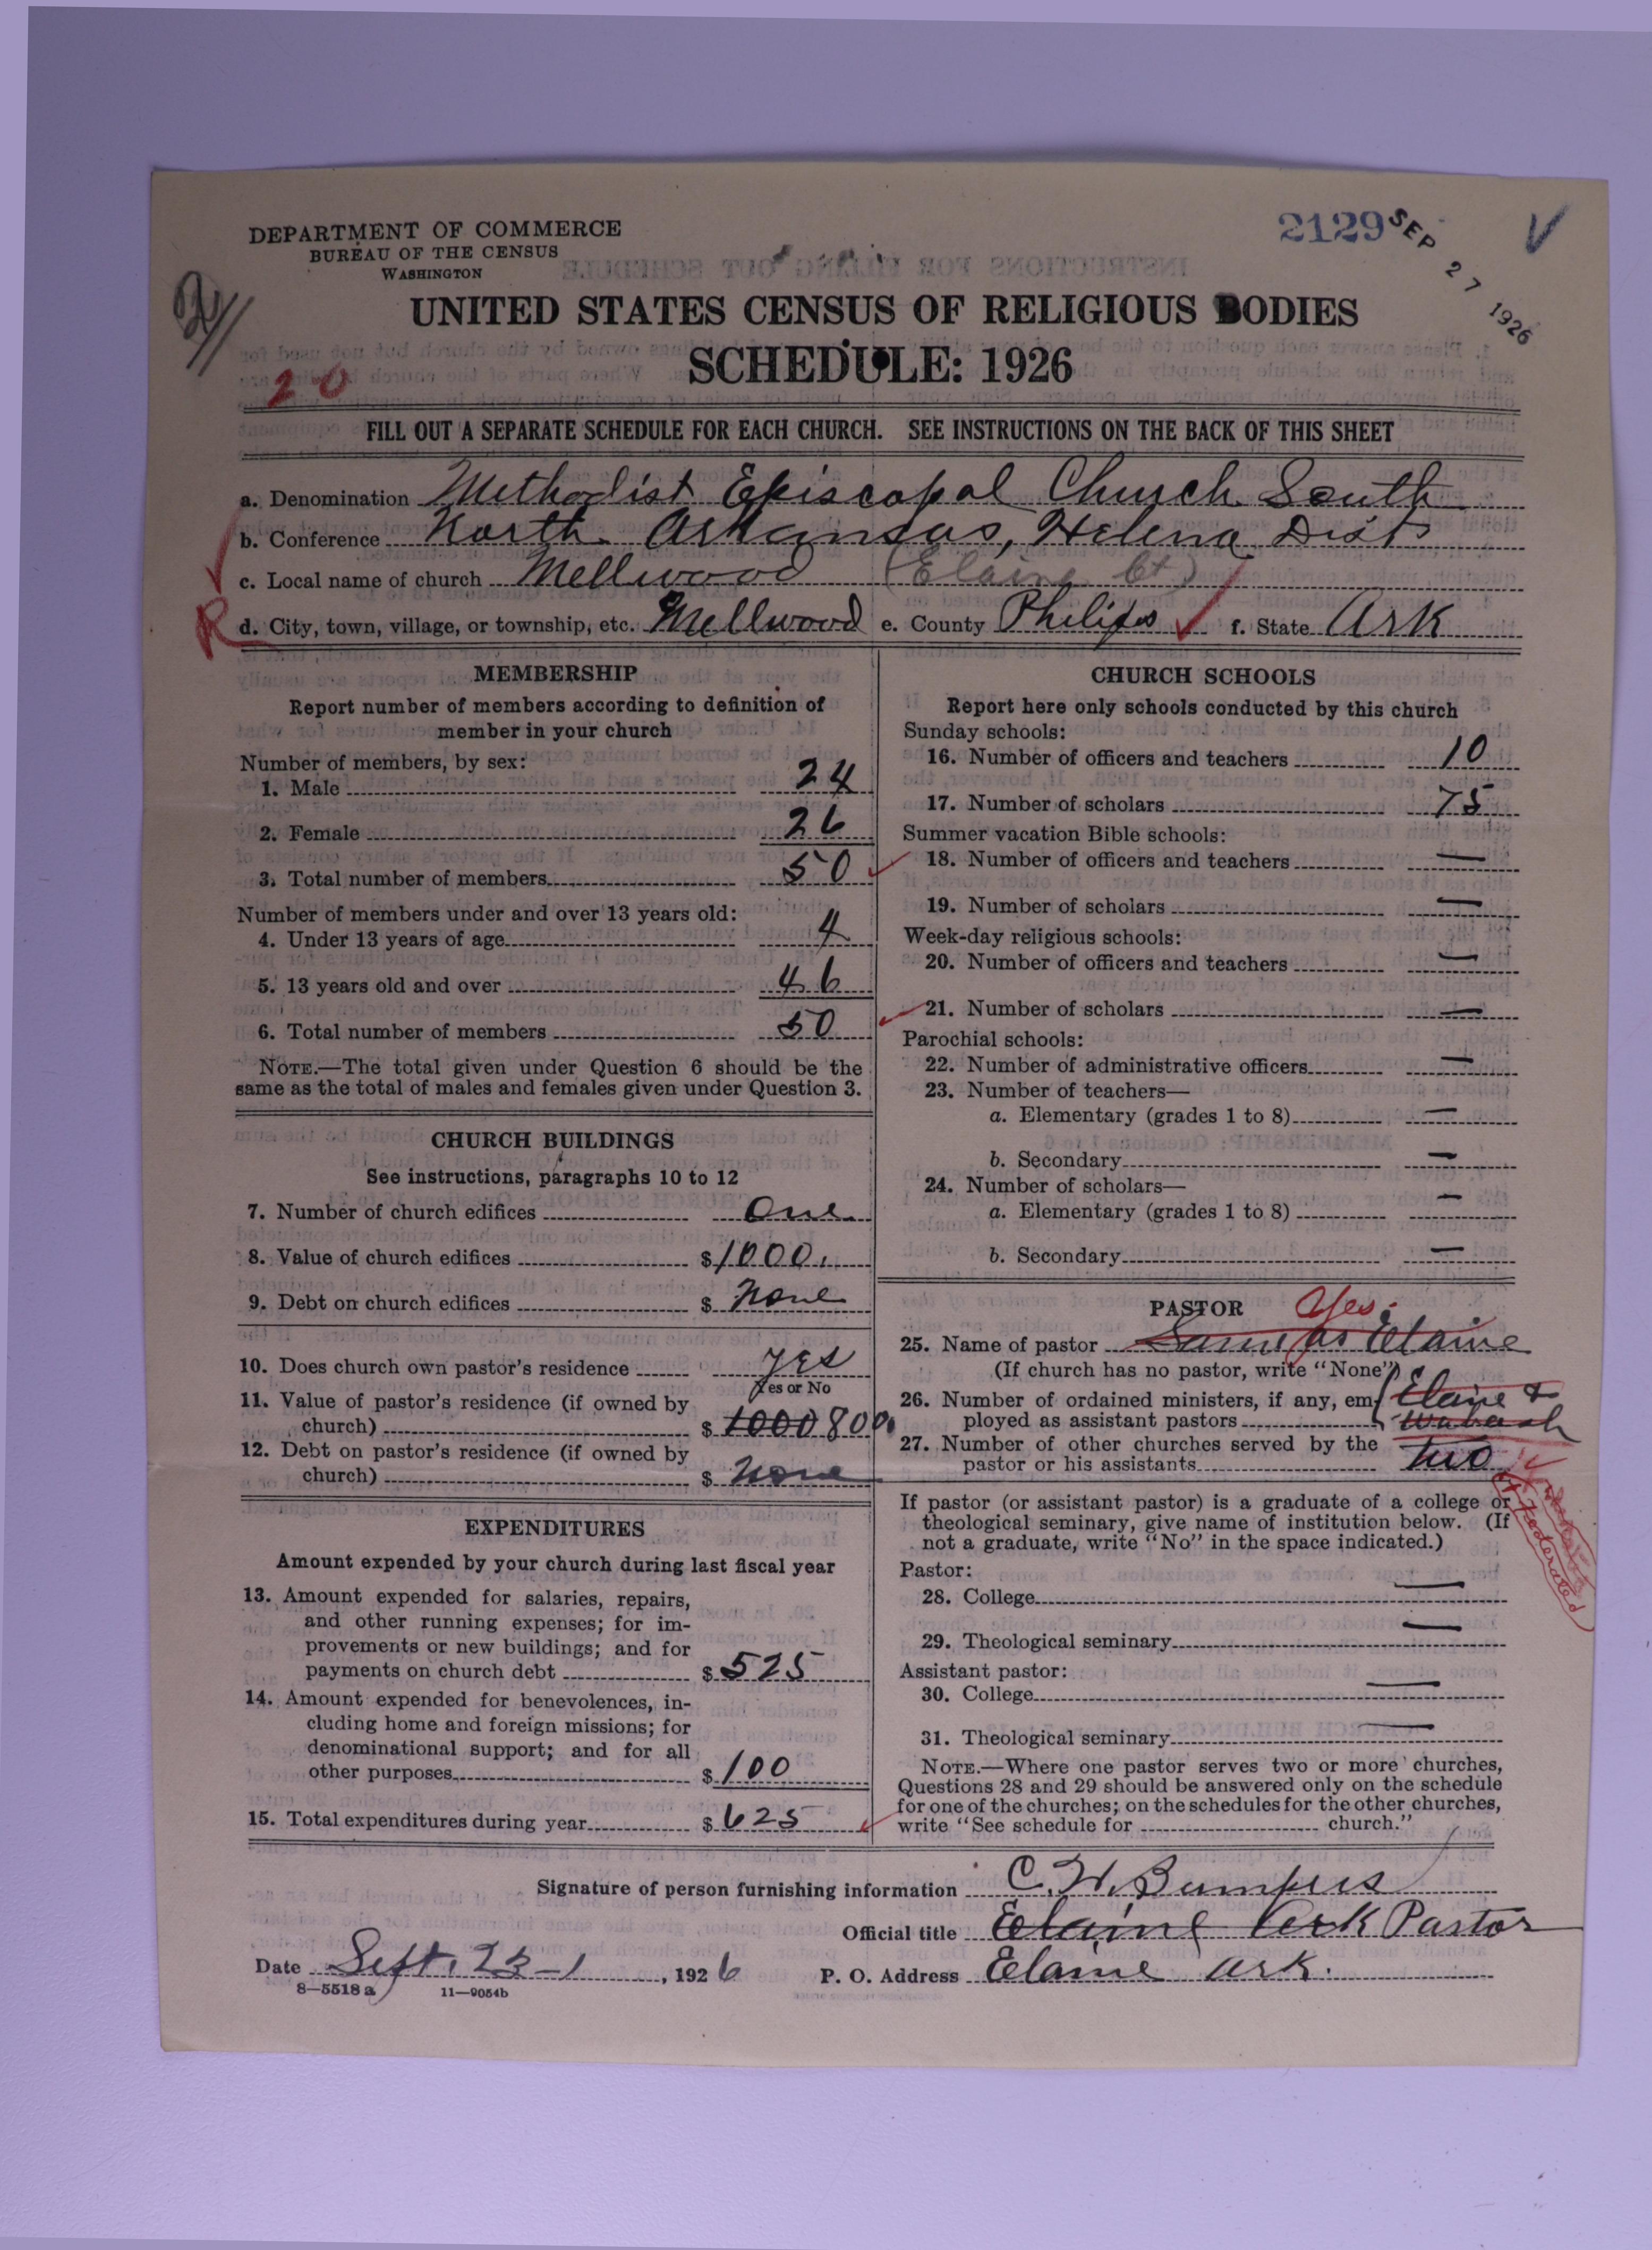 DEPARTMENT OF COMMERCE
BUREAU OF THE CENSUS
WASHINGTON
2129
SEP 27 1926
UNITED STATES CENSUS OF RELIGIOUS BODIES
SCHEDULE: 1926
20
FILL OUT A SEPARATE SCHEDULE FOR EACH CHURCH. SEE INSTRUCTIONS ON THE BACK OF THIS SHEET
a. Denomination Methodist Episcopal Church South
b. Conference North Arkansas, Helena Dist
c. Local name of church Mellwood (Elaine Ct)
R d. City, town, village, or township, etc. Mellwood e. County Philips f. State Ark
MEMBERSHIP
Report number of members according to definition of
member in your church
Number of members, by sex:
1. Male 24
2. Female 26
3. Total number of members 50
Number of members under and over 13 years old:
4. Under 13 years of age 4
5. 13 years old and over 46
6. Total number of members 50
NOTE.—The total given under Question 6 should be the
same as the total of males and females given under Question 3.
CHURCH BUILDINGS
See instructions, paragraphs 10 to 12
7. Number of church edifices One
8. Value of church edifices $1000.
9. Debt on church edifices $ None
10. Does church own pastor's residence yes
Yes or No
11. Value of pastor's residence (if owned by
church) $ 1000 800
12. Debt on pastor's residence (if owned by
church) $ None
EXPENDITURES
Amount expended by your church during last fiscal year
13. Amount expended for salaries, repairs,
and other running expenses; for im-
provements or new buildings; and for
payments on church debt $525
14. Amount expended for benevolences, in-
cluding home and foreign missions; for
denominational support; and for all
other purposes $100
15. Total expenditures during year $625
CHURCH SCHOOLS
Report here only schools conducted by this church
Sunday schools:
16. Number of officers and teachers 10
17. Number of scholars 75
Summer vacation Bible schools:
18. Number of officers and teachers —
19. Number of scholars —
Week-day religious schools:
20. Number of officers and teachers —
21. Number of scholars —
Parochial schools:
22. Number of administrative officers —
23. Number of teachers—
a. Elementary (grades 1 to 8) —
b. Secondary —
24. Number of scholars—
a. Elementary (grades 1 to 8) —
b. Secondary —
PASTOR Yes.
25. Name of pastor Same as Elaine
(If church has no pastor, write "None")
26. Number of ordained ministers, if any, em- Elaine &
ployed as assistant pastors Wabash
27. Number of other churches served by the
pastor or his assistants two
If pastor (or assistant pastor) is a graduate of a college or
theological seminary, give name of institution below. (If
not a graduate, write "No" in the space indicated.)
Federated
Pastor:
28. College —
29. Theological seminary —
Assistant pastor:
30. College —
31. Theological seminary —
NOTE.—Where one pastor serves two or more churches,
Questions 28 and 29 should be answered only on the schedule
for one of the churches; on the schedules for the other churches,
write "See schedule for church."
Signature of person furnishing information C. W. Bumpers
Official title Elaine Ark Pastor
Date Sept. 23, 1926 P. O. Address Elaine Ark.
8—5518 a 11—9054b